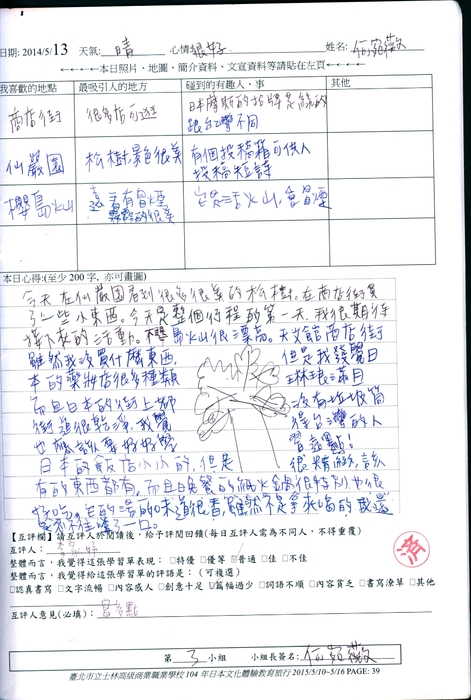 日期: 2014/5/13 天氣: 晴 心情 很好 姓名: 何宛薇
←←←←本日照片、地圖、簡介資料、文宣資料等請貼在左頁←←←←
我喜歡的地點 最吸引人的地方 碰到的有趣人、事 其他
商店街 很多店可逛 日本摩斯的招牌是綠的
跟台灣不同
仙巖園 松樹,景色很美 有個投稿箱可供人
投稿短詩
櫻島火山 遠方有冒煙 它是活火山,會冒煙
的很美
本日心得:(至少 200 字, 亦可畫圖)
今天在仙巖園看到很多很美的松樹。在商店街買
了一些小東西。今天是整個行程的第一天,我很期待
接下來的活動。櫻島火山很漂亮。天文館商店街
雖然我沒買什麼東西, 但是我發覺日
本的藥妝店很多種類 琳琅滿目
而且日本的街上都 沒有垃圾筒
街道很乾淨,我覺 得台灣的人
也應該要好好學 習這點!
日本的飯店小小的,但是 很精緻,該
有的東西都有,而且晚餐的 火鍋很特別也很
好吃,它的湯的味道很香,雖然不是拿來喝的 我還
是忍不住喝了一口。
【互評欄】請互評人於閱讀後,給予評閱回饋(每日互評人需為不同人,不得重覆)
互評人:
整體而言,我覺得這張學習單表現:□特優 □優等 ☑普通 □佳 □不佳
整體而言,我覺得給這張學習單的評語是:(可複選)
□認真書寫 □文字流暢 □內容感人 □創意十足 ☑篇幅過少 □詞語不順 □內容貧乏 □書寫潦草 □其他
互評人意見(必填): 寫多點
第 3 小組 小組長簽名: 何宛薇
臺北市立士林高級商業職業學校 104 年日本文化體驗教育旅行 2015/5/10~5/16 PAGE: 39